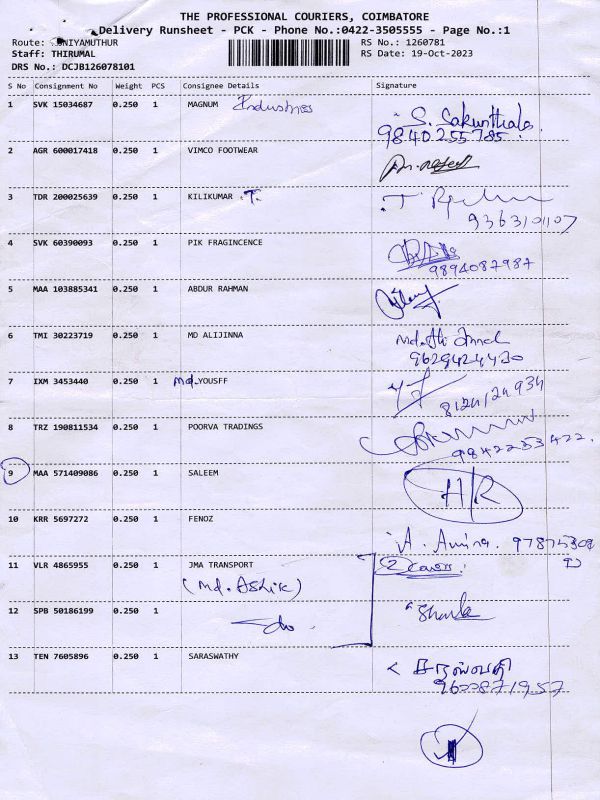 THE PROFESSIONAL COURIERS, COIMBATORE
Delivery Runsheet - PCK - Phone No.:0422-3505555 - Page No.:1
Route: NIYAMUTHUR RS No.: 1260781
Staff: THIRUMAL RS Date: 19-Oct-2023
DRS No.: DCJB126078101
S No Consignment No Weight PCS Consignee Details Signature
1 SVK 15034687 0.250 1 MAGNUM Industries S. Sakunthala
9840255785
2 AGR 600017418 0.250 1 VIMCO FOOTWEAR
3 TDR 200025639 0.250 1 KILIKUMAR .T.
9363101107
4 SVK 60390093 0.250 1 PIK FRAGINCENCE
9894087987
5 MAA 103885341 0.250 1 ABDUR RAHMAN
6 TMI 30223719 0.250 1 MD ALIJINNA Md. Ali Jinnah
9629424430
7 IXM 3453440 0.250 1 Md. YOUSFF
8124124934
8 TRZ 190811534 0.250 1 POORVA TRADINGS
9842253422.
9 MAA 571409086 0.250 1 SALEEM H/R
10 KRR 5697272 0.250 1 FENOZ A. Amina.
11 VLR 4865955 0.250 1 JMA TRANSPORT 2 covers.
(Md. Ashik)
12 SPB 50186199 0.250 1
13 TEN 7605896 0.250 1 SARASWATHY சரஸ்வதி